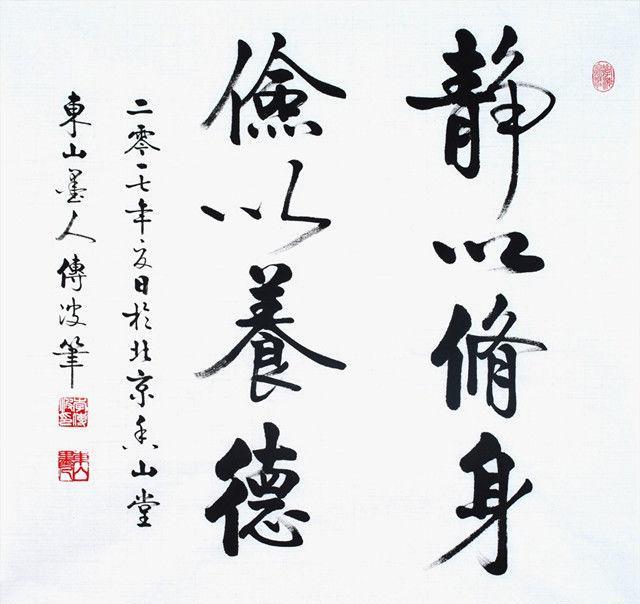 静以脩身
儉以養德
二零一七年夏日於北京香山堂
東山墨人傳波筆